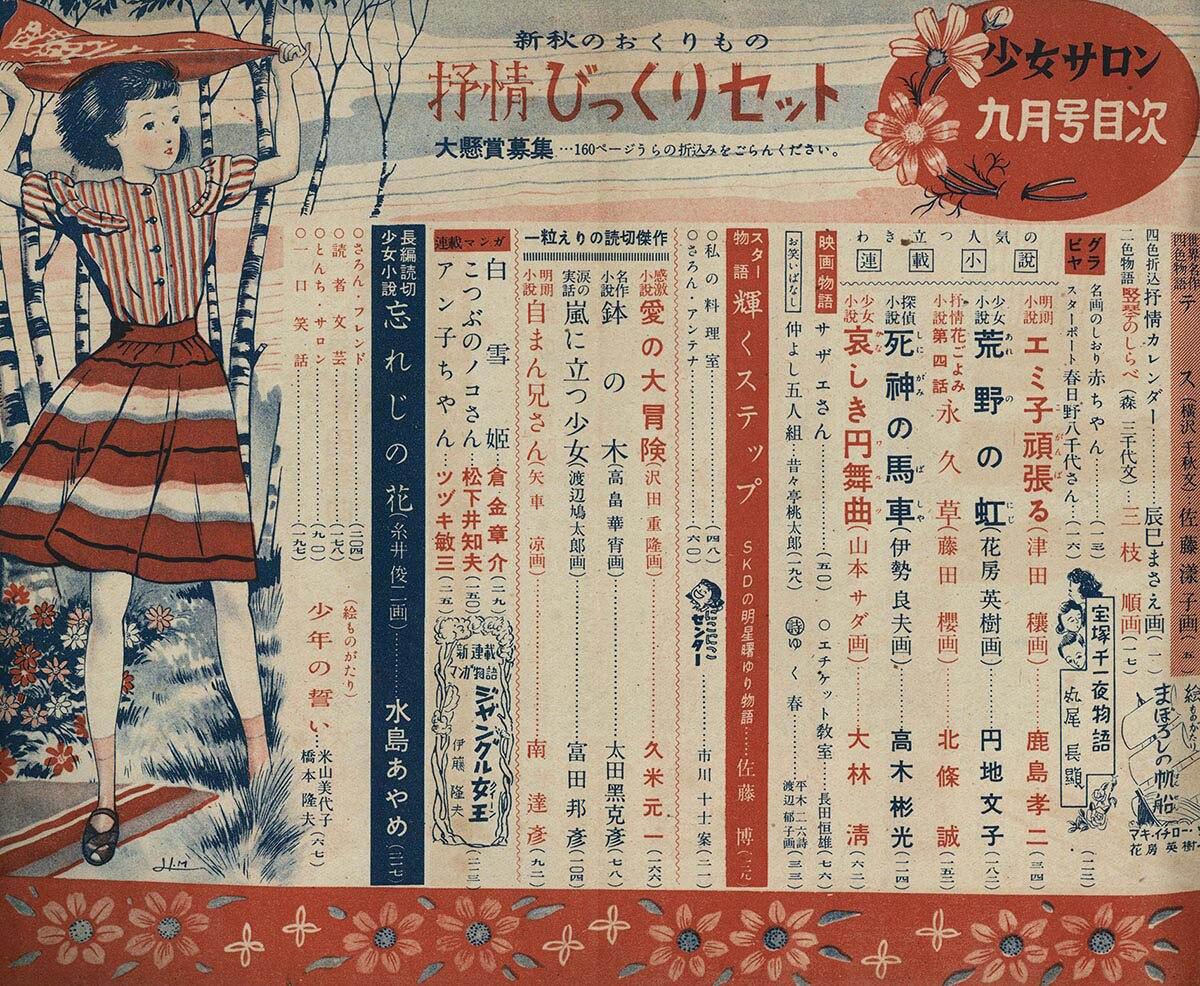 少女サロン
九月号目次
新秋のおくりもの
抒情びっくりセット
大懸賞募集…160ページうらの折込みをごらんください。
佐藤漾子画
四色折込 抒情カレンダー……辰巳まさえ画(一)
二色物語 竪琴のしらべ(森三千代文)…三枝順画(一七)
まぼろしの帆船
マキ・イチロー
花房英樹
グラビヤ
名画のしおり 赤ちゃん……(一三)
スターポート 春日野八千代さん…(一六)
宝塚千一夜物語
丸尾長顯
(一二二)
わき立つ人気の
連載小説
明朗小説 エミ子頑張る(津田穰画)……鹿島孝二(三四)
少女小説 荒野の虹(花房英樹画)……円地文子(一八二)
抒情小説 花ごよみ 第四話 永久草(藤田櫻画)……北條誠(五二)
探偵小説 死神の馬車(伊勢良夫画)……高木彬光(二一四)
少女小説 哀しき円舞曲(山本サダ画)……大林清(六二)
映画物語
サザエさん……(五〇)
○エチケット教室…長田恒雄(七六)
お笑いばなし 仲よし五人組…昔々亭桃太郎(一九八)
詩 ゆく春……平木二六詩 渡辺郁子画(三三)
スター物語 輝くステップ SKDの明星曙ゆり物語……佐藤博
○私の料理室……(四八)
○さろん・アンテナ……(六〇)
センター……市川十士案(二一)
一粒えりの読切傑作
感激小説 愛の大冒険(沢田重隆画)……久米元一(一六六)
名作小説 鉢の木(高畠華宵画)……太田黒克彦(七八)
涙の実話 嵐に立つ少女(渡辺鳩太郎画)……富田邦彦(一〇四)
明朗小説 自まん兄さん(矢車涼画)……南達彦(九二)
連載マンガ
白雪姫 倉金章介(二九)
こつぶのノコさん 松下井知夫(一五〇)
アン子ちゃん ツヅキ敏三(二五)
新連載
マンガ物語
ジャングル女王
クイーン
伊藤隆夫
(一一三)
長編読切少女小説 忘れじの花(糸井俊二画)……水島あやめ(二一七)
○さろん・フレンド……(二〇四)
○読者文芸……(一七八)
○とんち サロン……(九〇)
○一口笑話……(一九七)
(絵ものがたり)
少年の誓い 米山美代子 橋本隆夫(六七)
J.I.M